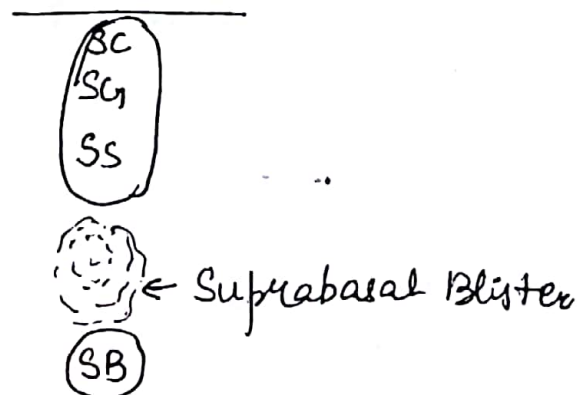 SC
SG
SS
← Suprabasal Blister
SB